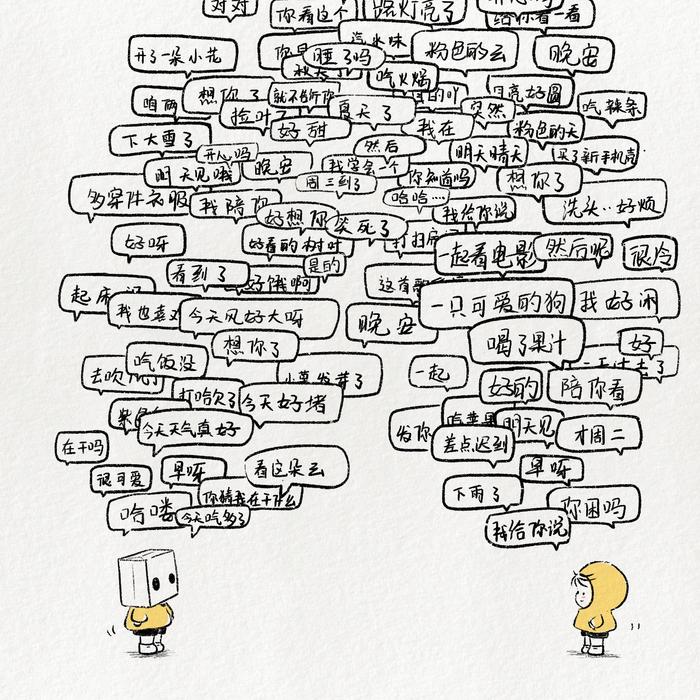 对对
你看这个
路灯亮了
给你看一看
开了一朵小花
汽水味
睡了吗
粉色的云
晚安
吃火锅
咱俩
想你了
就不告诉你
夏天了
月亮好圆
突然
吃辣条
捡叶子
好甜
我在
粉色的天
下大雪了
开心吗
然后
明天晴天
买了新手机壳
明天见哦
晚安
我学会一个
你知道吗
想你了
周三到了
哈哈…
多穿件衣服
我陪你
好想你
笑死了
我给你说
洗头..好烦
好呀
好看的树叶
一起看电影
然后呢
很冷
是的
看到了
好饿啊
起床
这首歌
一只可爱的狗
我好闲
今天风好大呀
晚安
想你了
喝了果汁
好
吃饭没
一起
好的
陪你看
打哈欠了
今天好堵
今天天气真好
明天见
才周二
差点迟到
在干吗
很可爱
早呀
看这朵云
早呀
你猜我在干什么
下雨了
你困吗
哈喽
今天吃多了
我给你说